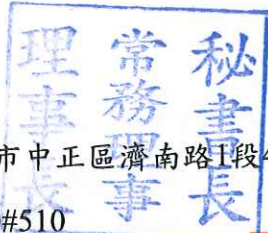 秘書長
常務理事
理事長
市中正區濟南路1段4
#510